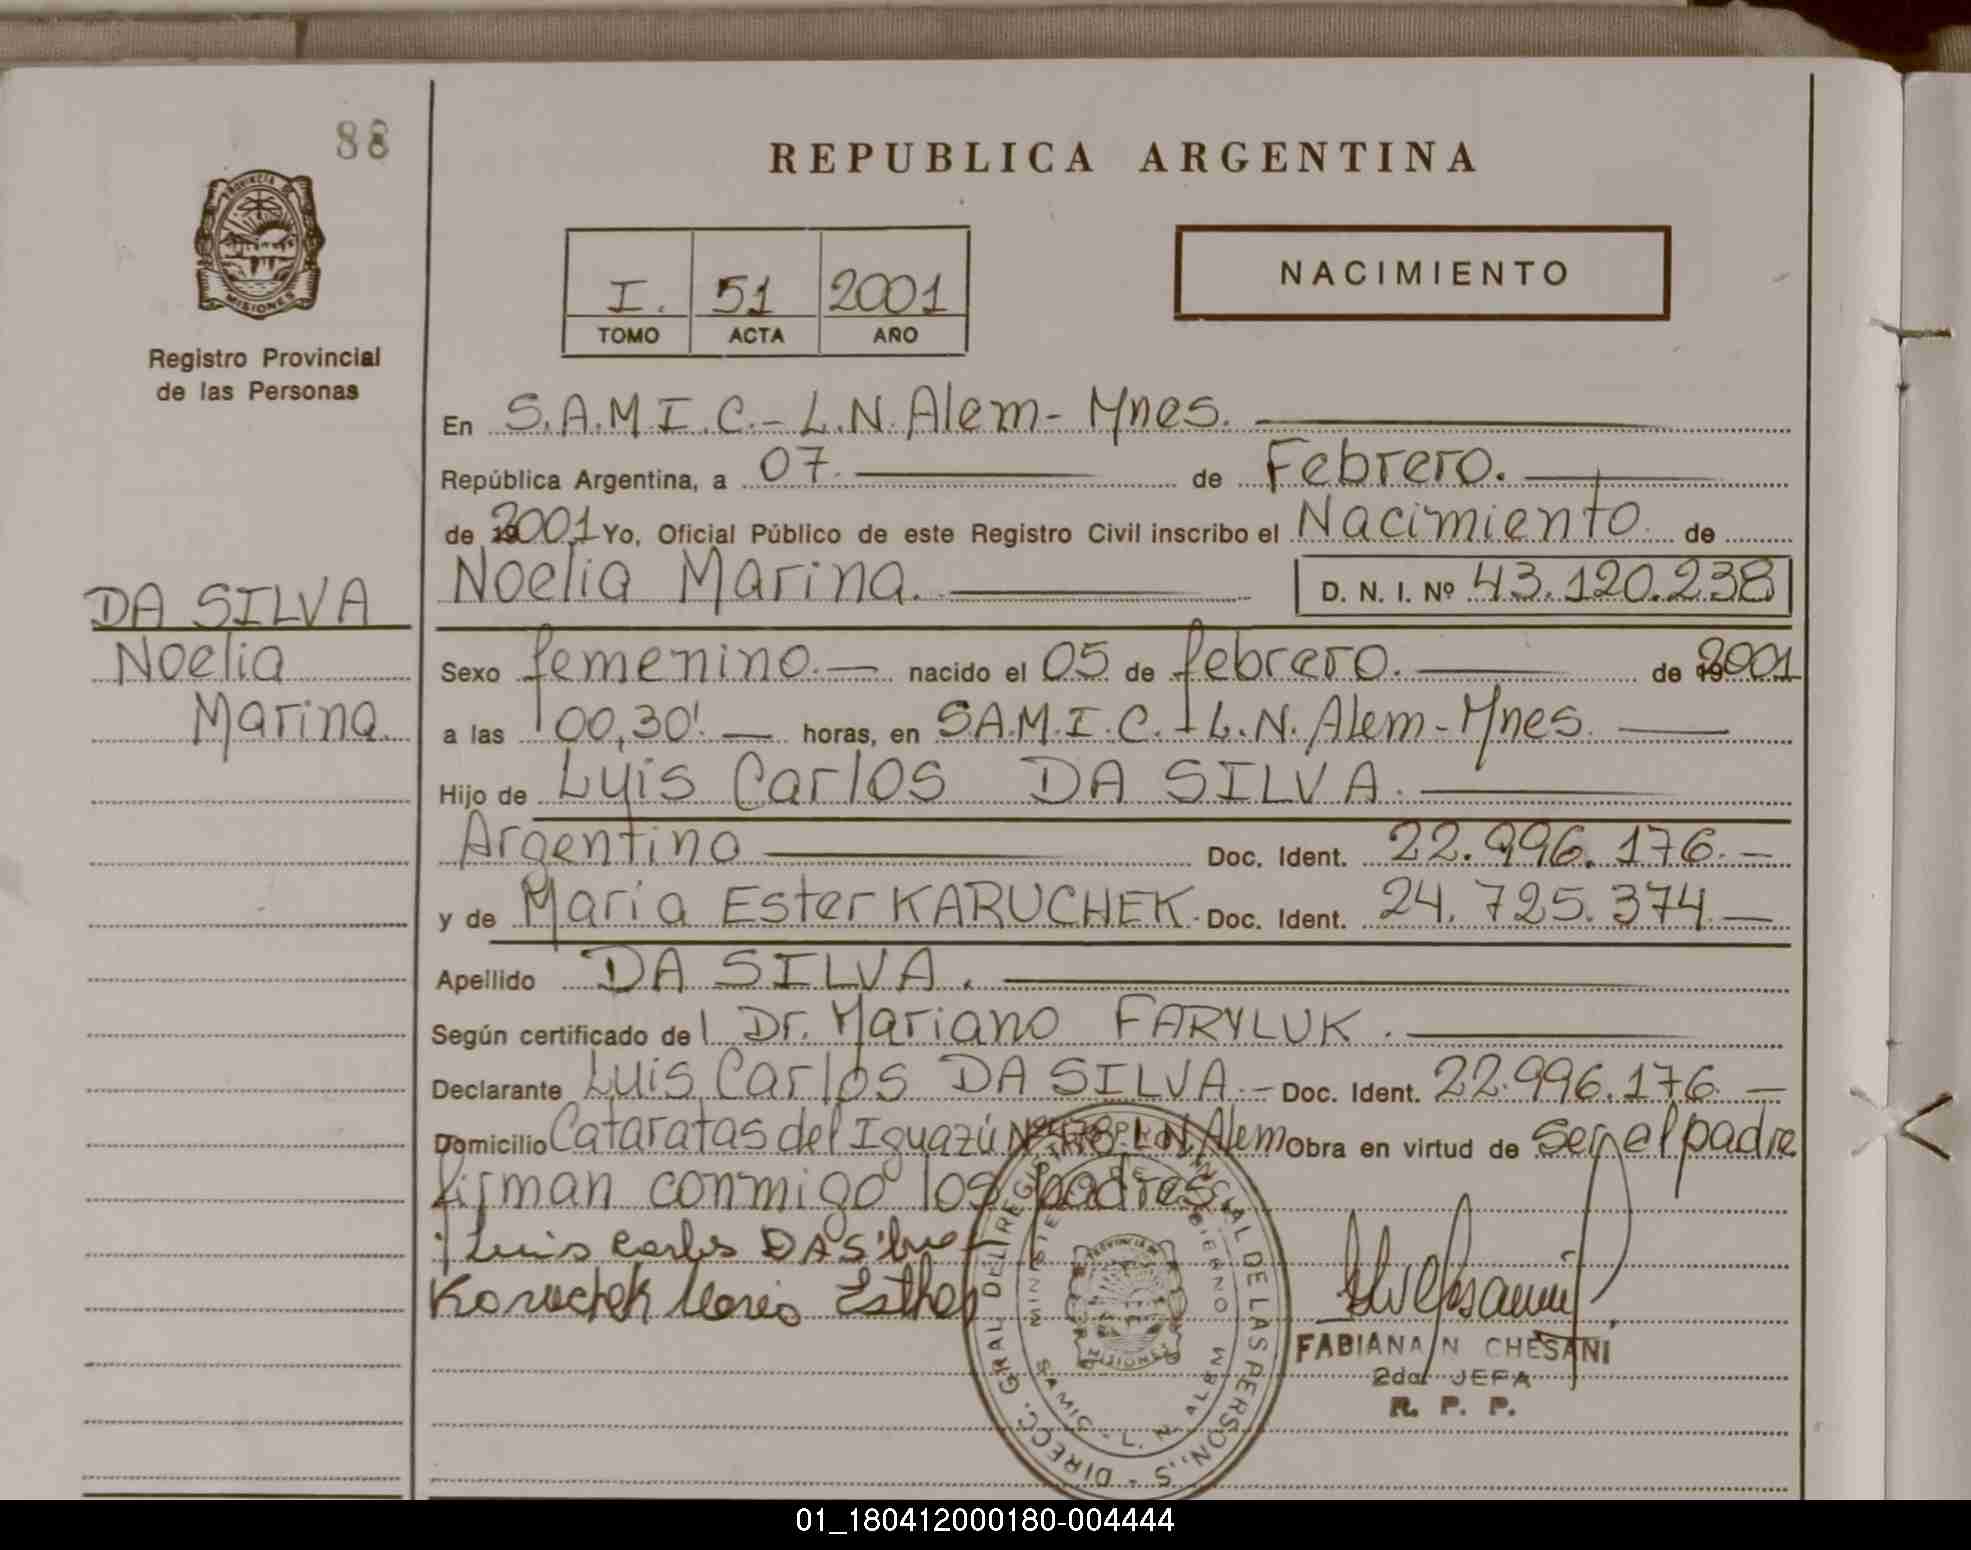 88
PROVINCIA DE
MISIONES
Registro Provincial
de las Personas
DA SILVA
Noelia
Marina
REPUBLICA ARGENTINA
I. 51 2001
TOMO ACTA AÑO
NACIMIENTO
En S.A.M.I.C.- L.N. Alem- Mnes.
República Argentina, a 07. de Febrero.
de 2001 Yo, Oficial Público de este Registro Civil inscribo el Nacimiento de
Noelia Marina. D. N. I. Nº 43.120.238
Sexo femenino.- nacido el 05 de febrero. de 2001
a las 00,30'. horas, en SA.M.I.C.- L.N. Alem- Mnes.
Hijo de Luis Carlos DA SILVA.
Argentino Doc. Ident. 22.996.176.-
y de Maria Ester KARUCHEK. Doc. Ident. 24.725.374.-
Apellido DA SILVA.
Según certificado del Dr. Mariano FARYLUK.
Declarante Luis Carlos DA SILVA.- Doc. Ident. 22.996.176.-
Domicilio Cataratas del Iguazú Nº 478- L.N. Alem Obra en virtud de ser el padre
firman conmigo los padres.
Luis Carlos DA Silva
Karuchek Maria Esther
DIRECC. GRAL DEL REGISTRO PROVINCIAL DE LAS PERSON.,S -
MINISTERIO DE GOBIERNO
PROVINCIA DE
MISIONES
SAMIC - L. N. ALEM
FABIANA N CHESANI
2da. JEFA
R. P. P.
01_180412000180-004444